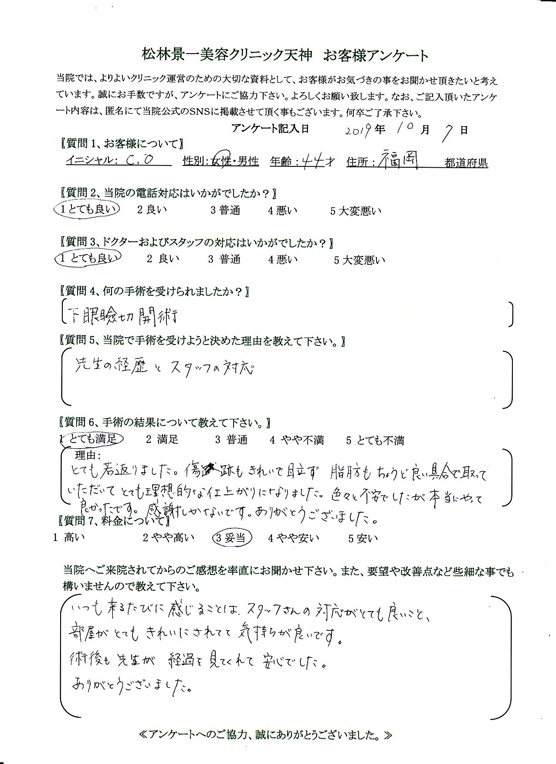 松林景一美容クリニック天神　お客様アンケート
当院では、よりよいクリニック運営のための大切な資料として、お客様がお気づきの事をお聞かせ頂きたいと考え
ています。誠にお手数ですが、アンケートにご協力下さい。よろしくお願い致します。なお、ご記入頂いたアンケ
ート内容は、匿名にて当院公式のSNSに掲載させて頂く事もございます。何卒ご了承下さい。
アンケート記入日　2019年 10月 7日
〖質問1、お客様について〗
イニシャル： C.O　性別：女性・男性　年齢：44才　住所：福岡　都道府県
〖質問2、当院の電話対応はいかがでしたか？〗
1 とても良い　2 良い　3 普通　4 悪い　5 大変悪い
〖質問3、ドクターおよびスタッフの対応はいかがでしたか？〗
1 とても良い　2 良い　3 普通　4 悪い　5 大変悪い
〖質問4、何の手術を受けられましたか？〗
下眼瞼切開術
〖質問5、当院で手術を受けようと決めた理由を教えて下さい。〗
先生の経歴と スタッフの対応
〖質問6、手術の結果について教えて下さい。〗
1 とても満足　2 満足　3 普通　4 やや不満　5 とても不満
理由：
とても若返りました。傷跡もきれいで目立ず 脂肪もちょうど良い具合で取って
いただいて とても理想的な仕上がりになりました。色々不安でしたが本当にやって
良かったです。感謝しかないです。ありがとうございました。
〖質問7、料金について〗
1 高い　2 やや高い　3 妥当　4 やや安い　5 安い
当院へご来院されてからのご感想を率直にお聞かせ下さい。また、要望や改善点など些細な事でも
構いませんので教えて下さい。
いつも来るたびに感じることは、スタッフさんの対応がとても良いこと、
部屋がとてもきれいにされてて 気持ちが良いです。
術後も先生が 経過を見てくれて 安心でした。
ありがとうございました。
≪アンケートへのご協力、誠にありがとうございました。≫